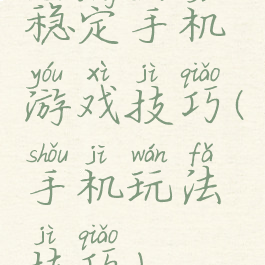 稳定手机
yóu xì jì qiǎo
游戏技巧(
shǒu jī wán fǎ
手机玩法
jì qiǎo
技巧)